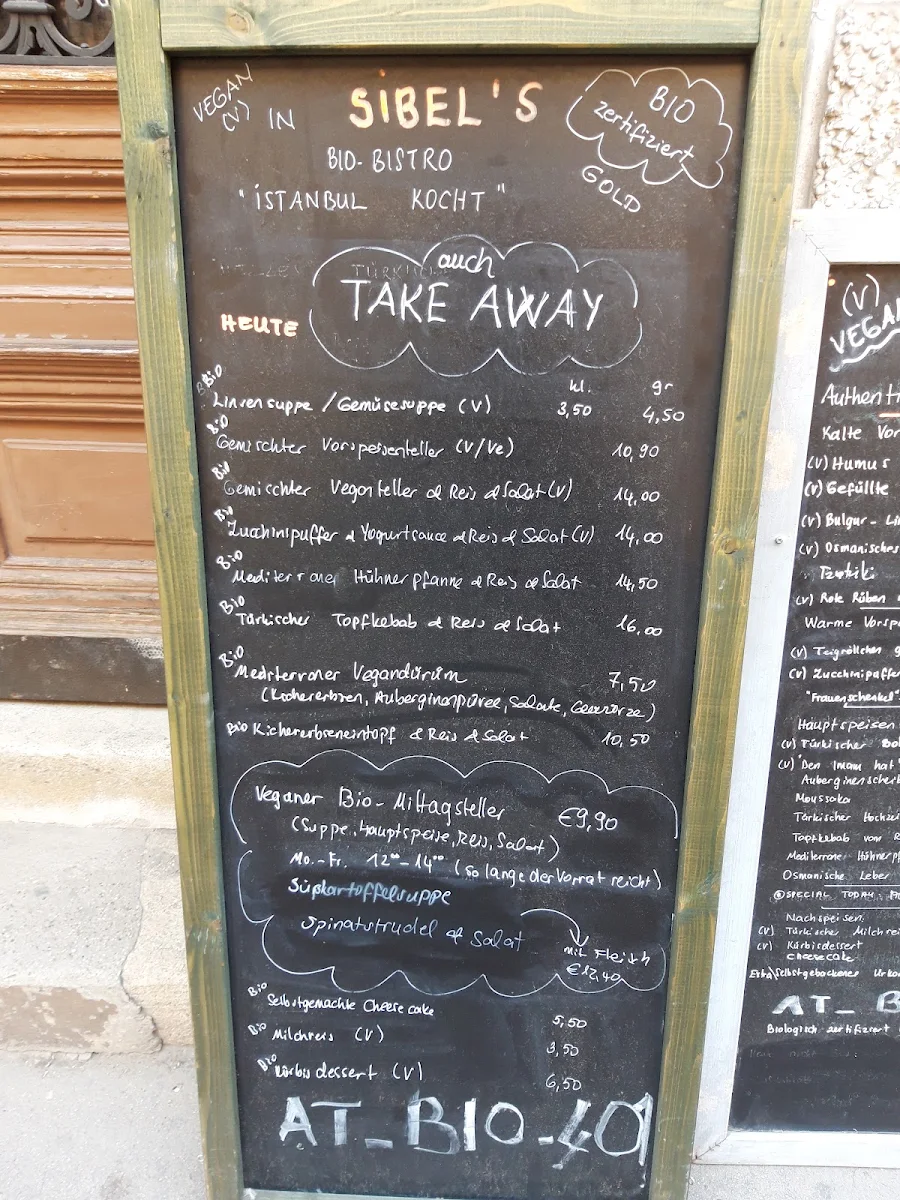 VEGAN
(V) IN SIBEL'S
BIO-BISTRO
"İSTANBUL KOCHT"
BIO
zertifiziert
GOLD
auch
TAKE AWAY
HEUTE
kl. gr
Bio
Linsensuppe / Gemüsesuppe (V) 3,50 4,50
Bio
Gemischter Vorspeisenteller (V/Ve) 10,90
Bio
Gemischter Veganteller & Reis & Salat (V) 14,00
Bio
Zucchinipuffer & Yogurtsauce & Reis & Salat (V) 14,00
Bio
Mediterraner Hühnerpfanne & Reis & Salat 14,50
Bio
Türkischer Topfkebab & Reis & Salat 16,00
Bio
Mediterraner Vegandürüm 7,50
(Kichererbsen, Auberginenpüree, Salate, Gewürze)
Bio Kichererbseneintopf & Reis & Salat 10,50
Veganer Bio-Mittagsteller €9,90
(Suppe, Hauptspeise, Reis, Salat)
Mo.-Fr. 12°°-14°° (so lange der Vorrat reicht)
Süßkartoffelsuppe
Spinatstrudel & Salat
mit Fleisch
€12,40
Bio
Selbstgemachte Cheese cake 5,50
Bio
Milchreis (V) 3,50
Bio
Kürbisdessert (V) 6,50
AT_BIO-401
(V)
VEGAN
Authenti
Kalte Vor
(V) Humus
(V) Gefüllte
(V) Bulgur-Li
(V) Osmanisches
Tzatziki
(V) Rote Rüben
Warme Vorsp
(V) Teigröllchen
(V) Zucchinipuffe
"Frauenschenkel"
Hauptspeisen
(V) Türkischer
(V) "Den Imam hat"
Auberginenscheib
Moussaka
Türkischer Hochzei
Topfkebab vom R
Mediterrane Hühnerpf
Osmanische Leber
SPECIAL TODAY:
Nachspeisen
(V) Türkischer Milchrei
(V) Kürbisdessert
cheesecake
AT_B
Biologisch zertifiziert